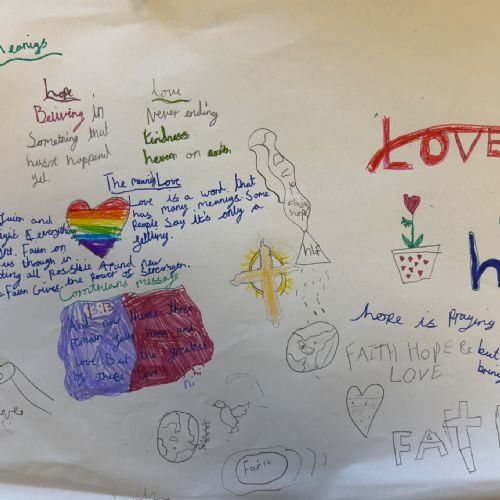 Meanigs
hope
Beliving in
Something that
hasnt happend
yet.
Love
Never ending
kindness.
heven on earth
The meanig Love
Love is a word that
has many meanigs. Some
People Say it's only a
felling.
and
everything
Faith on
us through in
all Possible A and new
Faith Gives the Power of Strength.
Corinthians message
13:13
And now these three
remain faith hope and
Love. But the greatest
of these Love.
hi
hi
Faith
hope
LOVE
h
hope is Praying
FAITH HOPE &
LOVE
but
Faith
FAIT